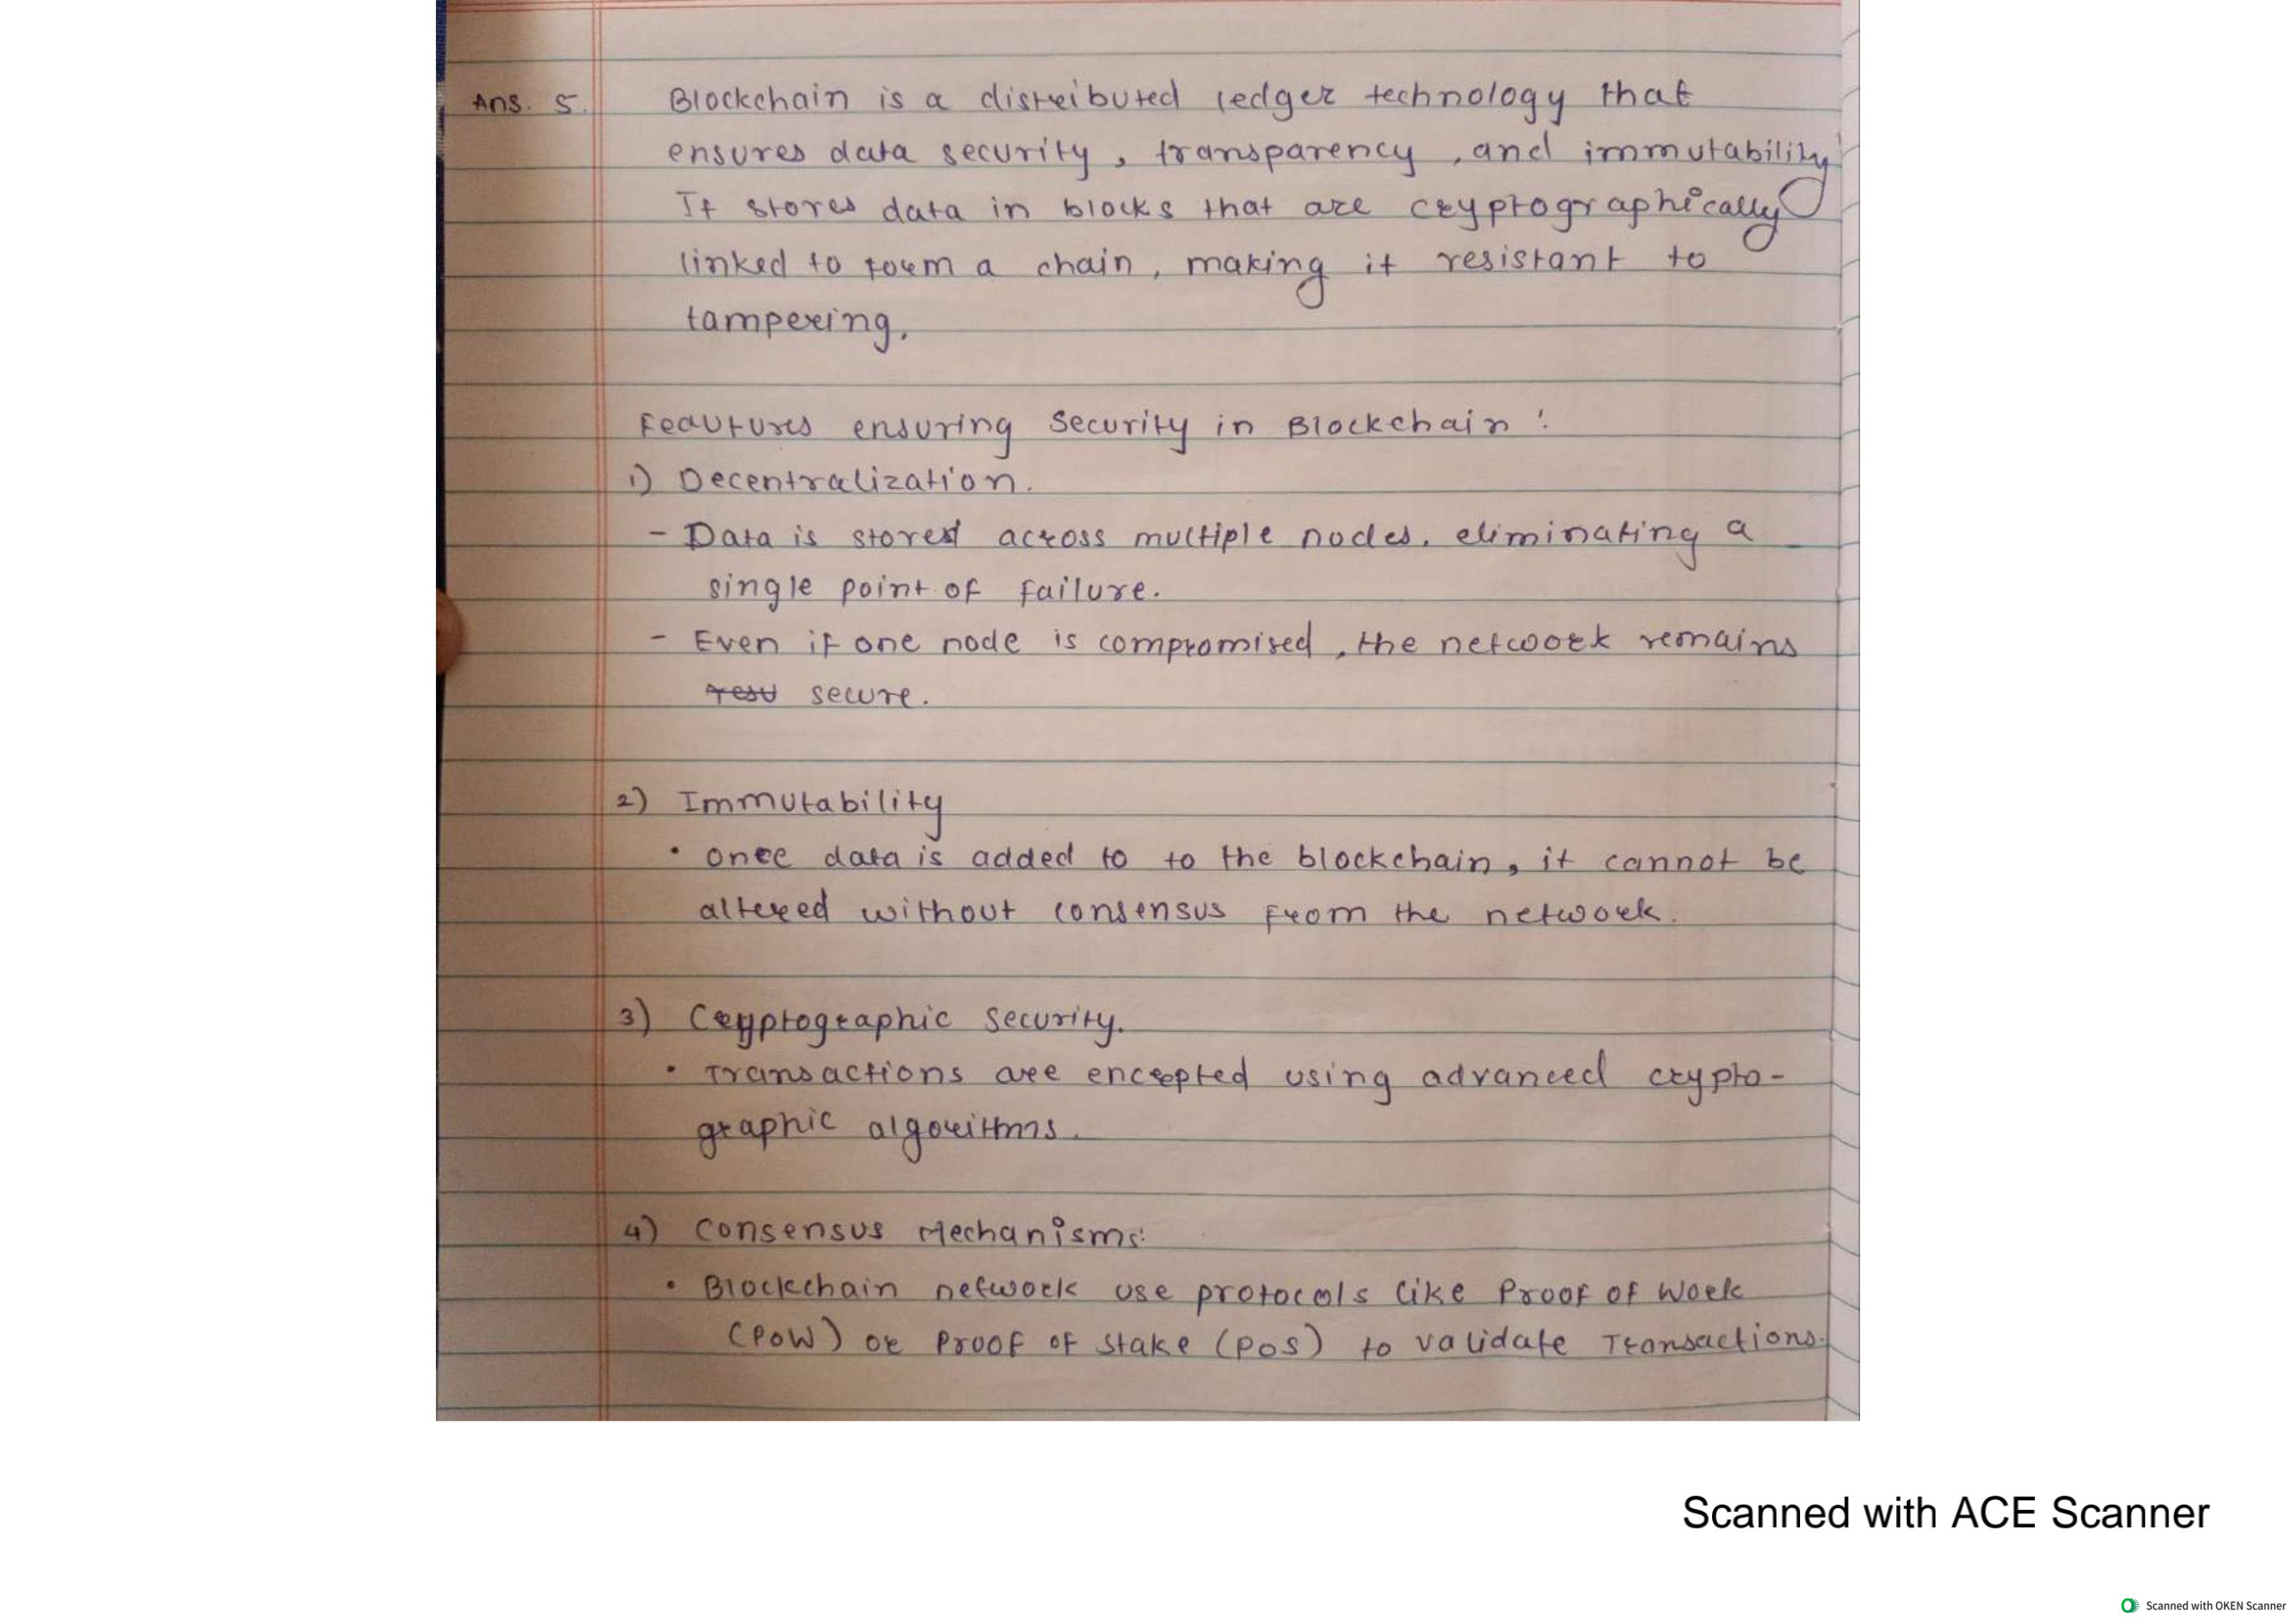 Ans. 5. Blockchain is a distributed ledger technology that
ensures data security, transparency, and immutability
It stores data in blocks that are cryptographically
linked to form a chain, making it resistant to
tampering.
Feautures ensuring Security in Blockchain :
1) Decentralization.
- Data is stored across multiple nodes, eliminating a
single point of failure.
- Even if one node is compromised, the network remains
secure.
2) Immutability
• once data is added to to the blockchain, it cannot be
altered without consensus from the network.
3) Cryptographic Security.
• Transactions are encrepted using advanced crypto-
graphic algorithms.
4) Consensus Mechanisms:
• Blockchain network use protocols like Proof of Work
(POW) or Proof of Stake (POS) to validate Transactions.
Scanned with ACE Scanner
Scanned with OKEN Scanner